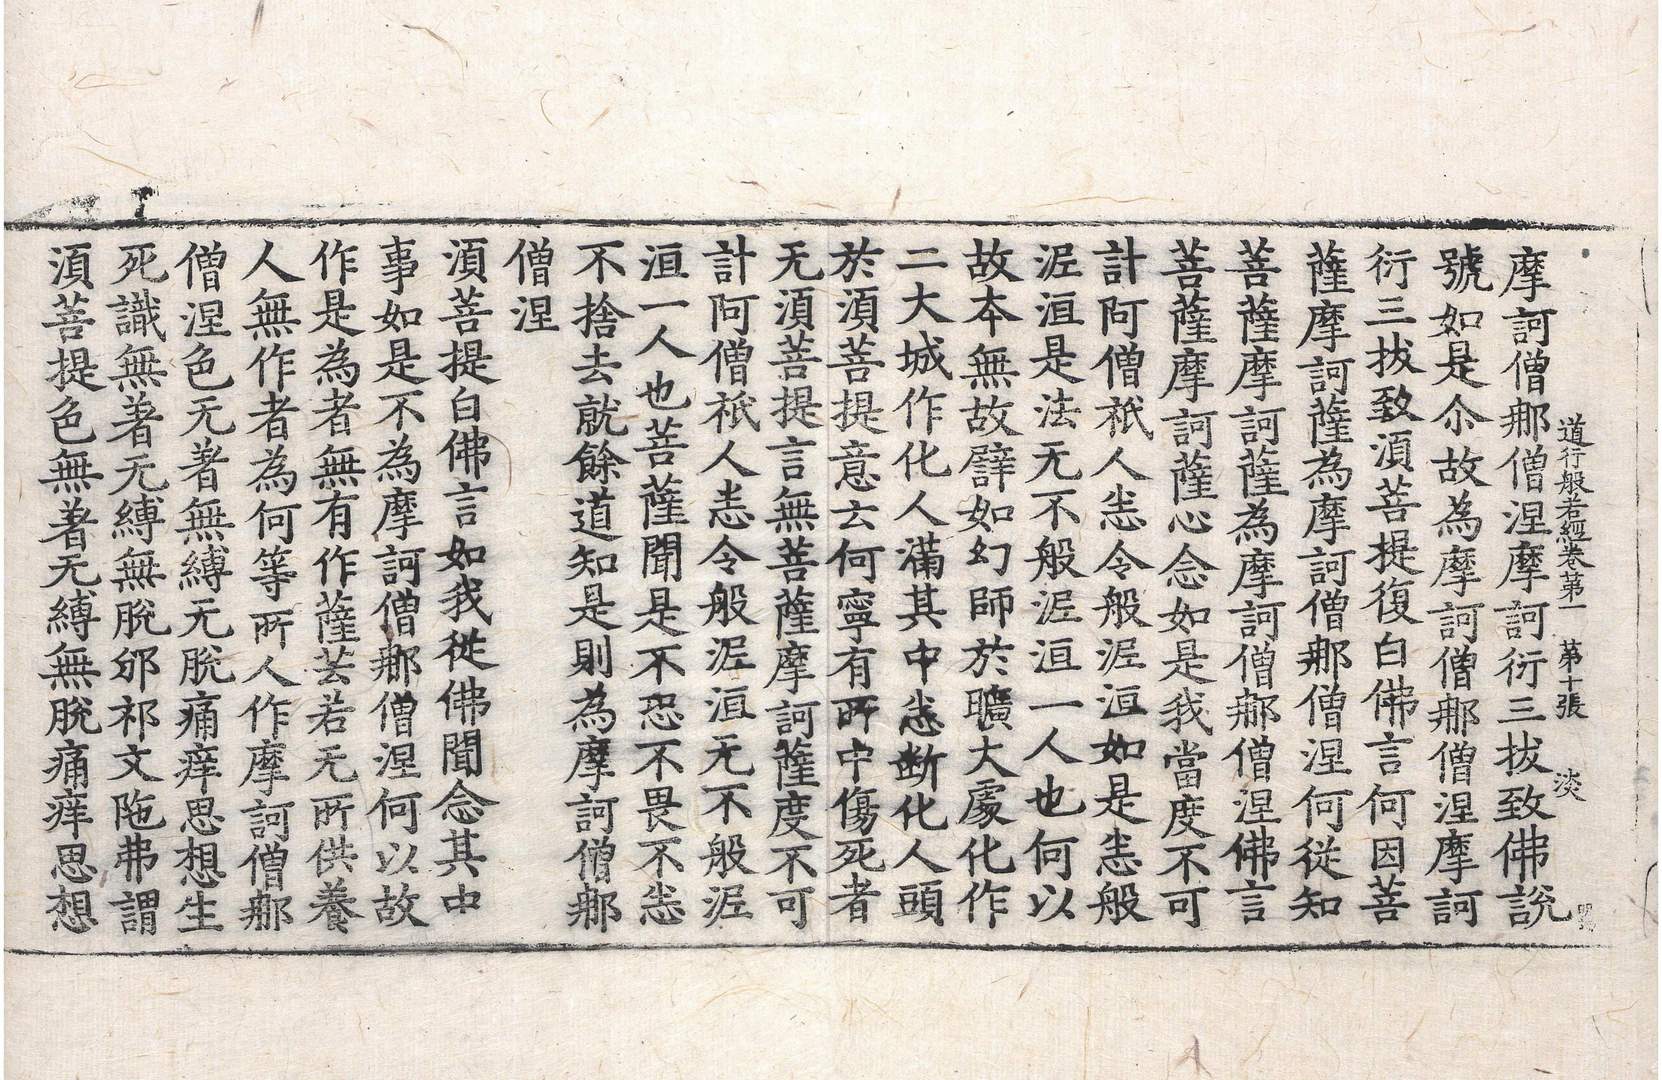 道行般若經卷第一 第十張 淡
摩訶僧那僧涅摩訶衍三拔致佛說
號如是尒故為摩訶僧那僧涅摩訶
衍三拔致須菩提復白佛言何因菩
薩摩訶薩為摩訶僧那僧涅何從知
菩薩摩訶薩為摩訶僧那僧涅佛言
菩薩摩訶薩心念如是我當度不可
計阿僧祇人悉令般泥洹如是悉般
泥洹是法无不般泥洹一人也何以
故本無故譬如幻師於曠大處化作
二大城作化人滿其中悉断化人頭
於須菩提意云何寧有所中傷死者
无須菩提言無菩薩摩訶薩度不可
計阿僧祇人悉令般泥洹无不般泥
洹一人也菩薩聞是不恐不畏不悉
不捨去就餘道知是則為摩訶僧那
僧涅
須菩提白佛言如我從佛聞念其中
事如是不為摩訶僧那僧涅何以故
作是為者無有作薩芸若无所供養
人無作者為何等所人作摩訶僧那
僧涅色无著無縛无脫痛痒思想生
死識無著无縛無脫邠祁文陁弗謂
須菩提色無著无縛無脫痛痒思想